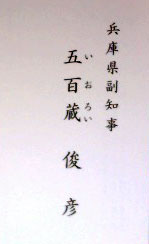 兵庫県副知事
五百蔵 俊彦
いおろい